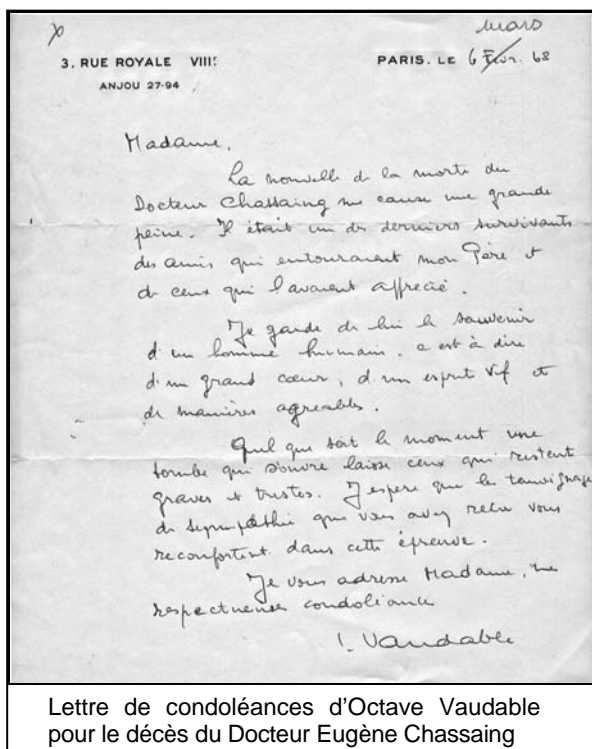 mars
3. RUE ROYALE VIII: PARIS. LE 6 Fevr. 68
ANJOU 27-94
Madame,
La nouvelle de la morte du
Docteur Chassaing me cause une grande
peine. Il était un des derniers survivants
des amis qui entouraient mon Père et
de ceux qui l'avaient apprécié.
Je garde de lui le souvenir
d'un homme humain. c est à dire
d'un grand cœur, d'un esprit vif et
de manières agreables.
Quel que soit le moment une
tombe qui s'ouvre laisse ceux qui restent
graves et tristes. J'espere que le temoignage
de sympathie que vous avez reçu vous
reconfortent dans cette épreuve.
Je vous adresse Madame, mes
respectueuses condoléances
Vaudable
Lettre de condoléances d'Octave Vaudable
pour le décès du Docteur Eugène Chassaing